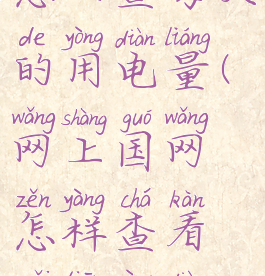 de yòng diàn liáng
的用电量(
wǎng shàng guó wǎng
网上国网
zěn yàng chá kàn
怎样查看